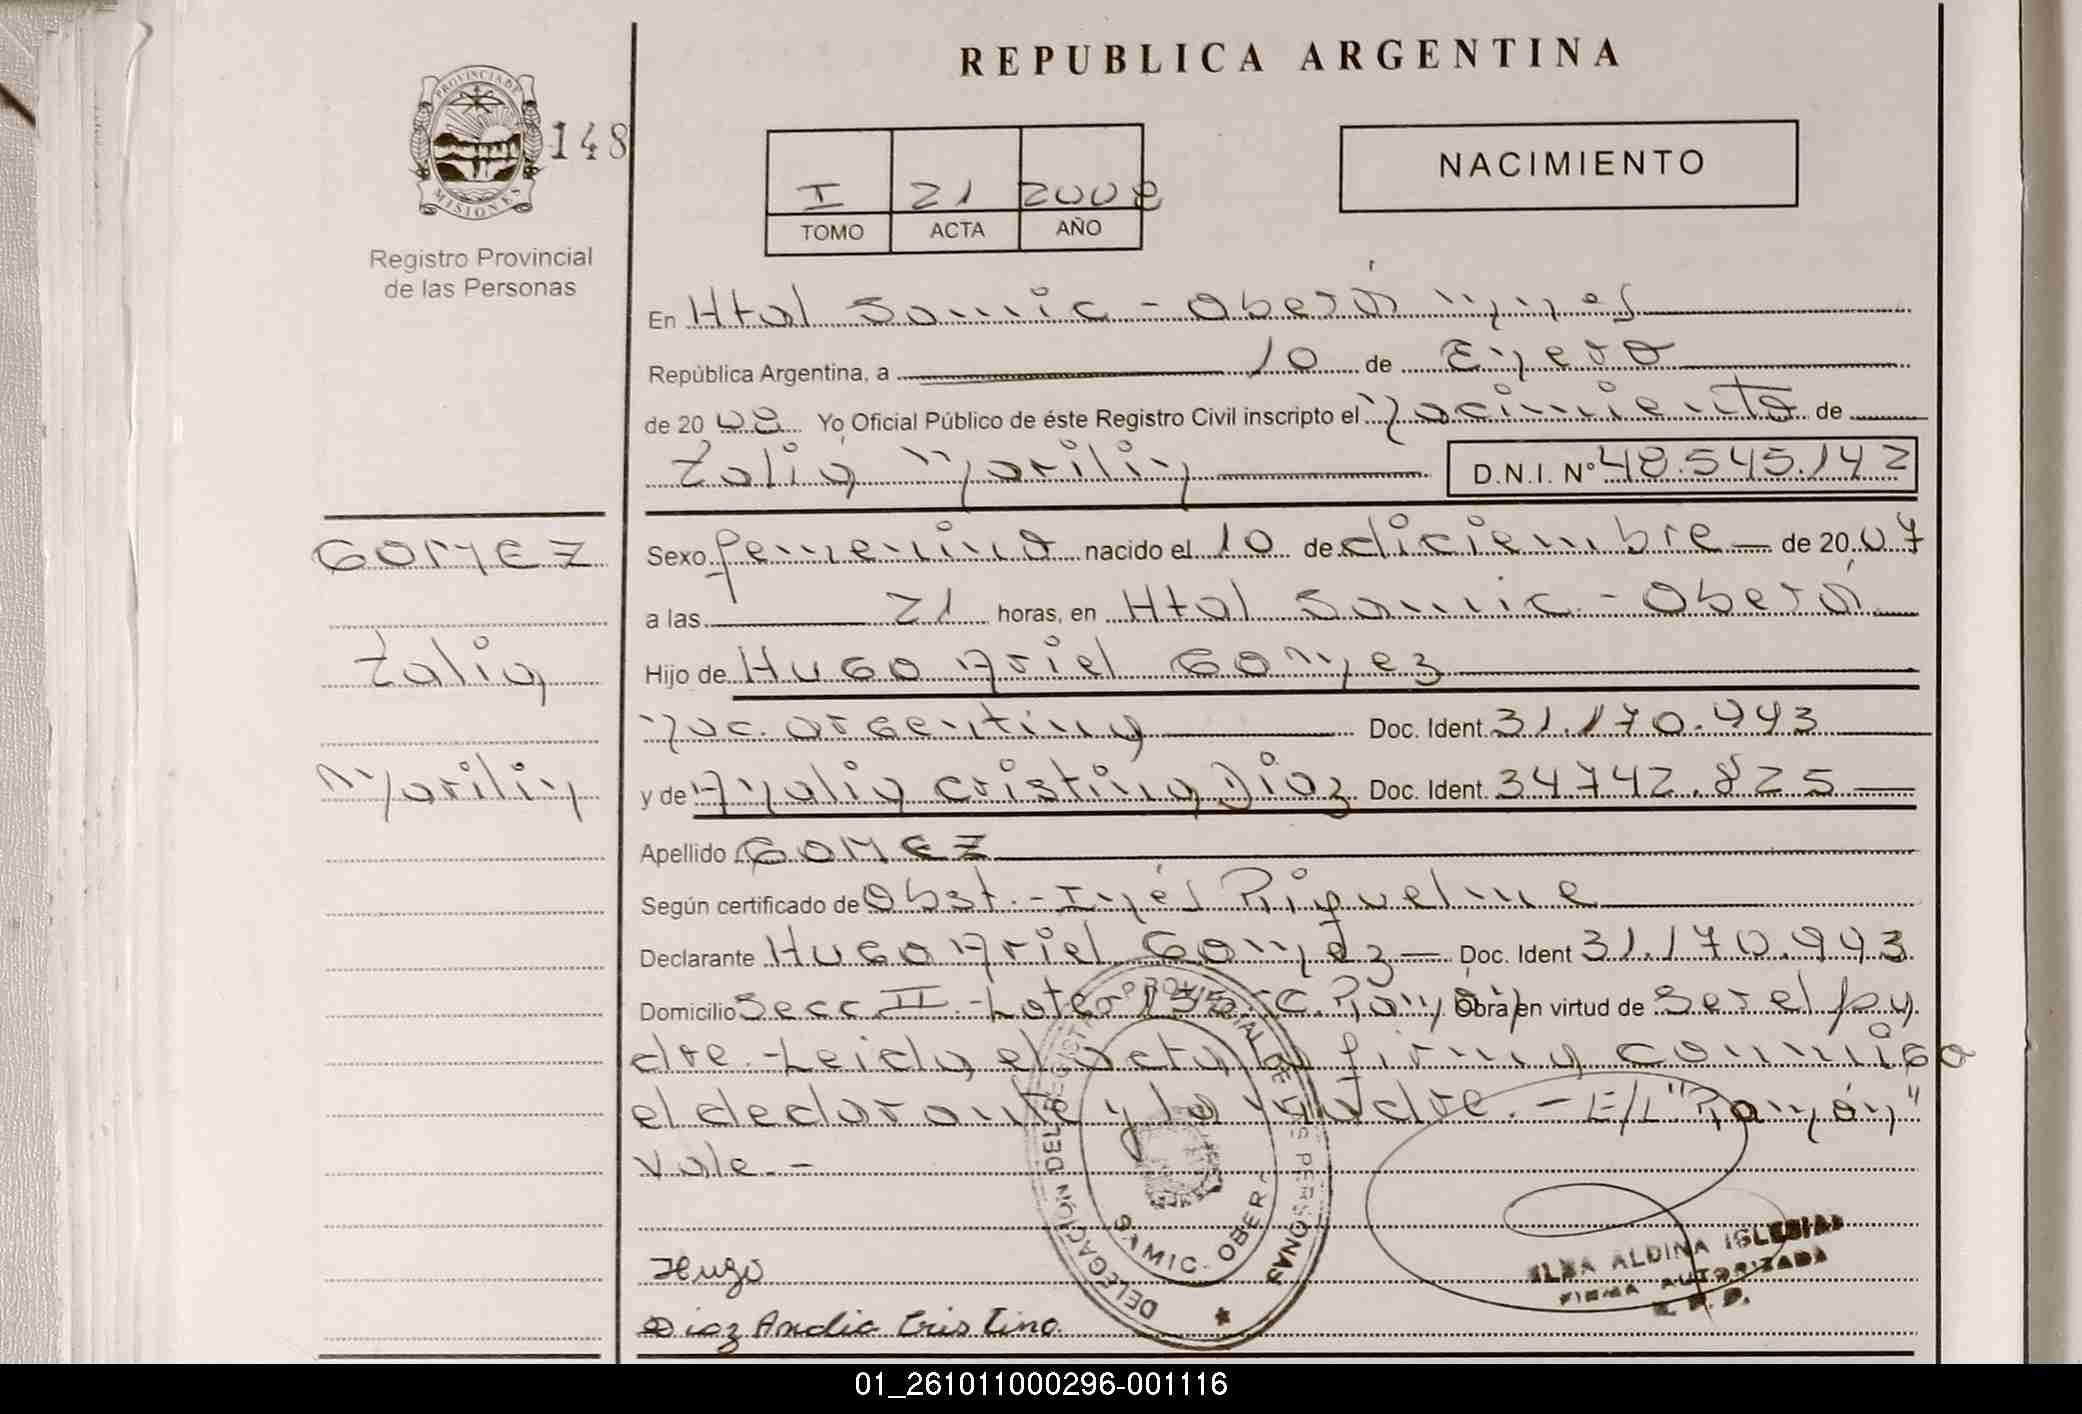 REPUBLICA ARGENTINA
PROVINCIA DE MISIONES
148
Registro Provincial
de las Personas
I 21 2008
TOMO ACTA AÑO
NACIMIENTO
En Htal Samic - Oberá Mnes
República Argentina, a 10 de Enero
de 2008 Yo Oficial Público de éste Registro Civil inscripto el Nacimiento de
Zalia Marilin D.N.I. Nº 48.545.142
GOMEZ
Zalia
Marilin
Sexo femenino nacido el 10 de diciembre de 2007
a las 21 horas, en Htal Samic - Oberá
Hijo de HUGO Ariel GOMez
Nac. argentina Doc. Ident. 31.170.993
y de Analia Cristina Diaz Doc. Ident. 34742.825
Apellido GOMEZ
Según certificado de Obst.- Inés Riquelme
Declarante HUGO Ariel GOMez Doc. Ident 31.170.993
Domicilio Secc II - Lote 135 C. Ramón Obra en virtud de ser el pa
dre.- Leida el acta la firma conmigo
el declarante y la madre.- E/L "Ramón"
Vale.-
Hugo
Diaz Analia Cristina
DELEGACION DEL REGISTRO PROVINCIAL DE LAS PERSONAS
SAMIC - OBERA
ILDA ALDINA IGLESIAS
FIRMA AUTORIZADA
R. P. P.
01_261011000296-001116